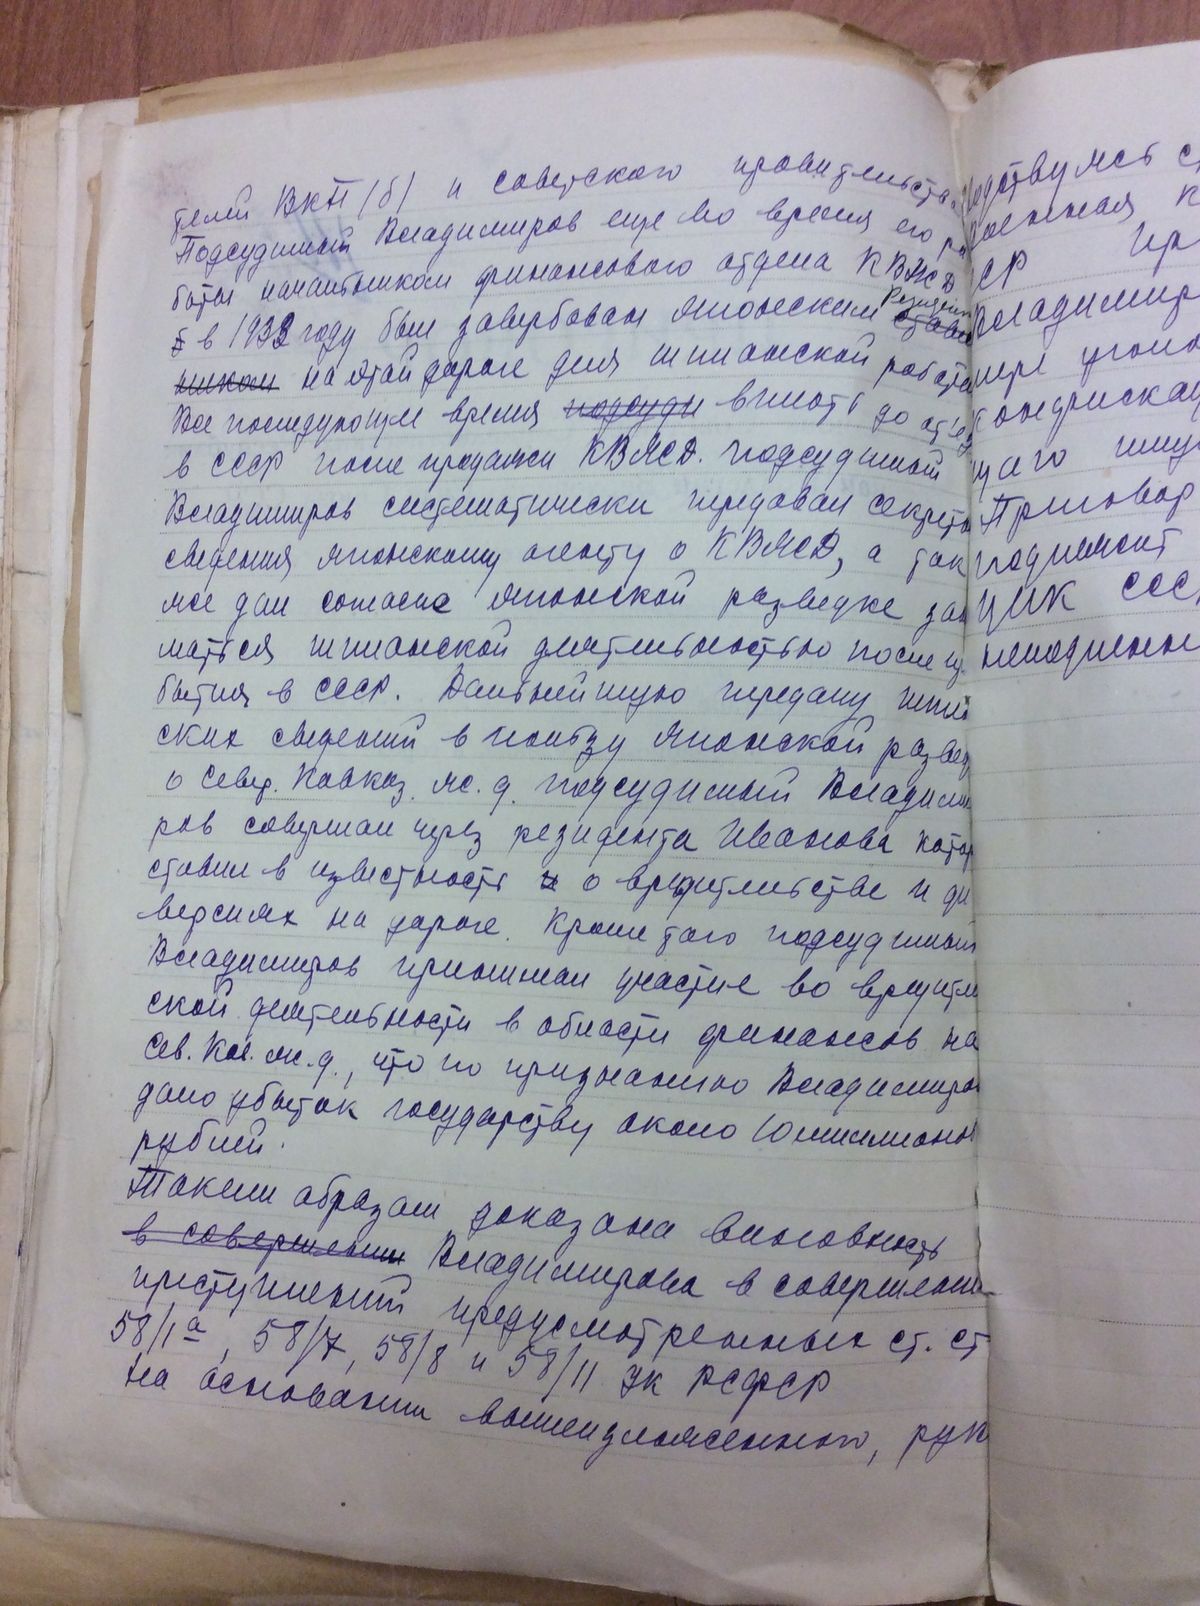 телей ВКП(б) и советского правительства
Подсудимый Владимиров еще во время его ра
боты начальником финансового отдела КВЖД
в 1932 году был завербован японским резидент
на этой дороге для шпионской работы
Все последующее время подсуди вплоть до от'езд
в СССР после продажи КВЖД. подсудимый
Владимиров систематически передавал секретн
сведения японскому агенту о КВЖД, а так
же дал согласие японской разведке зан
маться шпионской деятельностью после п
бытия в СССР. Дальнейшую передачу шпи
ских сведений в пользу японской развед
о Север. Кавказ. ж.д. подсудимый Владими
ров совершал через резидента Иванова котор
ставил в известность и о вредительстве и ди
версиях на дороге. Кроме того подсудимый
Владимиров принимал участие во вредител
ской деятельности в области финансов на
Сев. Кав. ж.д., что по признанию Владимиров
дало убыток государству около 10 миллионов
рублей.
Таким образом доказана виновность
в совершении Владимирова в совершении
преступлений предусмотренных ст. ст
58/1а, 58/7, 58/8 и 58/11 УК РСФСР
На основании вышеизложенного, рук
водствуясь ст
Военная К
СР пр
Владимир
мере уголо
конфискац
щего иму
Приговор
подлежит
ЦИК ССС
немедленн